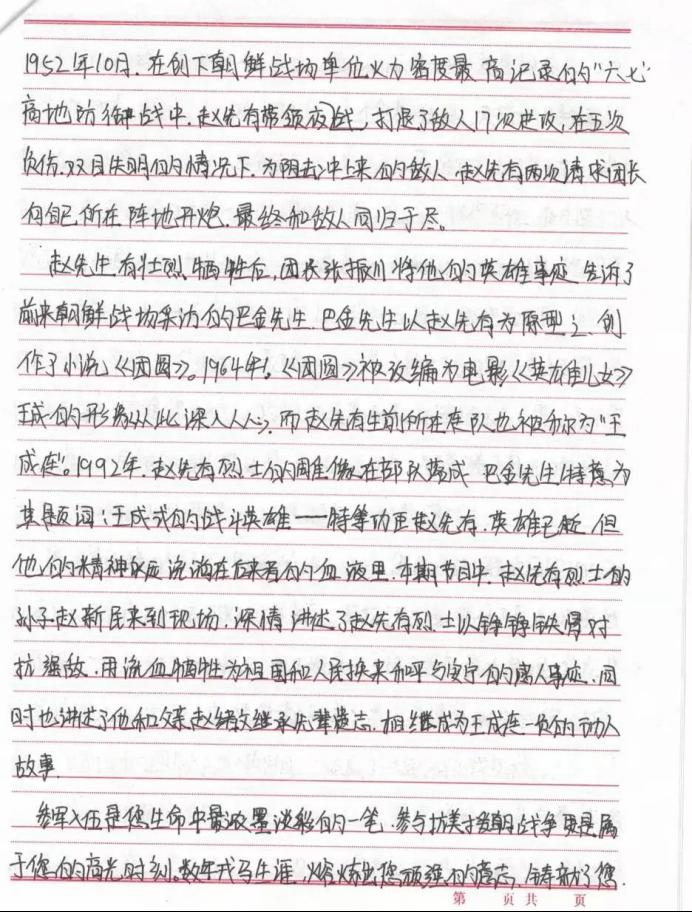 1952年10月,在创下朝鲜战场单位火力密度最高记录的"六七"
高地防御战中,赵先有带领夜战,打退了敌人17次进攻,在五次
负伤,双目失明的情况下,为阻击冲上来的敌人,赵先有两次请求团长
向自己所在阵地开炮,最终和敌人同归于尽。
赵先生有壮烈牺牲后,团长张振川将他的英雄事迹告诉了
前来朝鲜战场采访的巴金先生,巴金先生以赵先有为原型之,创
作了小说《团圆》。1964年,《团圆》被改编为电影《英雄儿女》
王成的形象从此深入人心,而赵先有生前所在连队也被称为"王
成连"。1992年,赵先有烈士的雕像在部队落成,巴金先生特意为
其题词:王成式的战斗英雄——特等功臣赵先有,英雄已逝,但
他的精神永远流淌在后来者的血液里,本期节目中,赵先有烈士的
孙子赵新民来到现场,深情讲述了赵先有烈士以铮铮铁骨对
抗强敌,用流血牺牲为祖国和人民换来和平与安宁的感人事迹,同
时也讲述了他和父亲赵绪文继承先辈遗志,相继成为王成连一员的动人
故事.
参军入伍是您生命中最浓墨淡彩的一笔,参与抗美援朝战争更是属
于您的高光时刻。数年戎马生涯,熔炼出您顽强的意志,铸就了您.
第 页 共 页